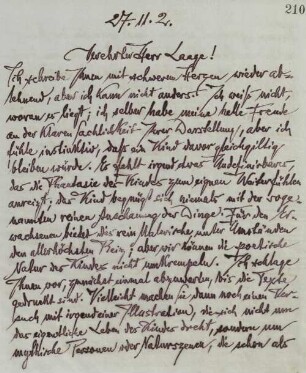 210
27.11.2.
Verehrter Herr Laage!
Ich schreibe Ihnen mit schwerem Herzen wieder ab-
lehnend, aber ich kann nicht anders. Ich weiß nicht,
woran es liegt; ich selber habe meine helle Freude
an der klaren Sachlichkeit Ihrer Darstellung, aber ich
fühle instinktiv, daß ein Kind davor gleichgiltig
bleiben würde. Es fehlt irgend etwas
das die Phantasie des Kindes zum eignen Weiterfühlen
anreizt; das Kind begnügt sich niemals mit der soge-
nannten reinen Anschauung der Dinge. Für den Er-
wachsenen bietet das rein Malerische unter Umständen
den allerhöchsten Reiz; aber wir können die poetische
Natur des Kindes nicht umkrempeln. Ich schlage
Ihnen vor, zunächst einmal abzuwarten, bis die Texte
gedruckt sind. Vielleicht machen Sie dann noch einen Ver-
such mit irgend einer Illustration, die sich nicht um
das eigentliche Leben des Kindes dreht, sondern um
mythische Personen oder Naturszenen, die schon als